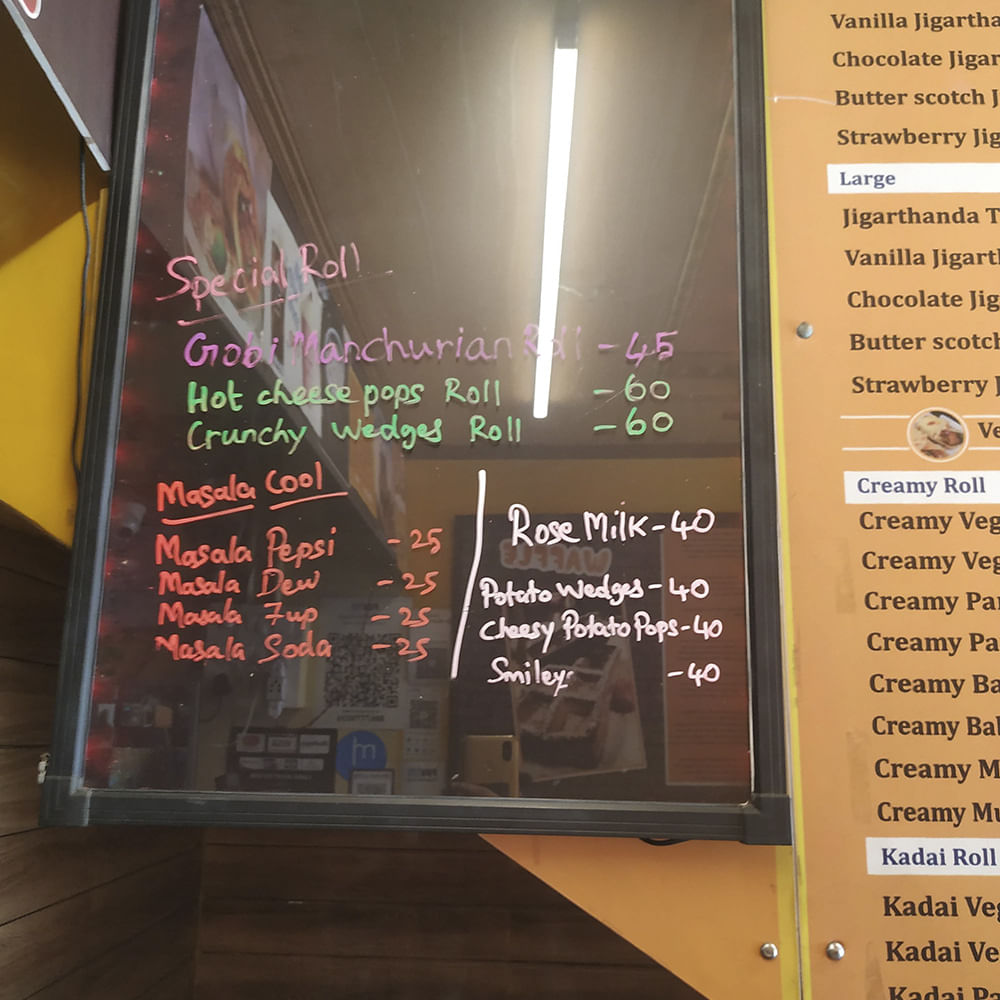 Special Roll
Gobi Manchurian Roll - 45
Hot cheese pops Roll - 60
Crunchy Wedges Roll - 60
Masala Cool
Masala Pepsi - 25
Masala Dew - 25
Masala 7up - 25
Masala Soda - 25
Rose Milk - 40
Potato Wedges - 40
Cheesy Potato Pops - 40
Smiley - 40
WAFFLE
Vanilla Jigartha
Chocolate Jigar
Butter scotch J
Strawberry Jig
Large
Jigarthanda T
Vanilla Jigart
Chocolate Jig
Butter scotch
Strawberry J
Ve
Creamy Roll
Creamy Veg
Creamy Veg
Creamy Pa
Creamy Pa
Creamy Ba
Creamy Bal
Creamy M
Creamy Mu
Kadai Roll
Kadai Veg
Kadai Ve
Kadai Pa